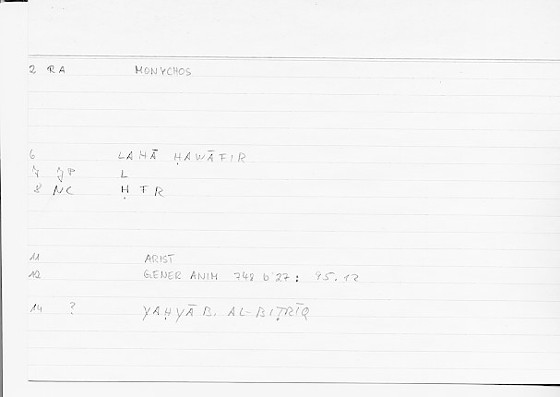 2 RA MONYCHOS
6 LAHĀ ḤAWĀFIR
7 L
8 NC Ḥ F R
11 ARIST
12 GENER ANIM 748 b 27 : 95.12
14 ? YAḤYĀ B. AL-BIṬRĪQ